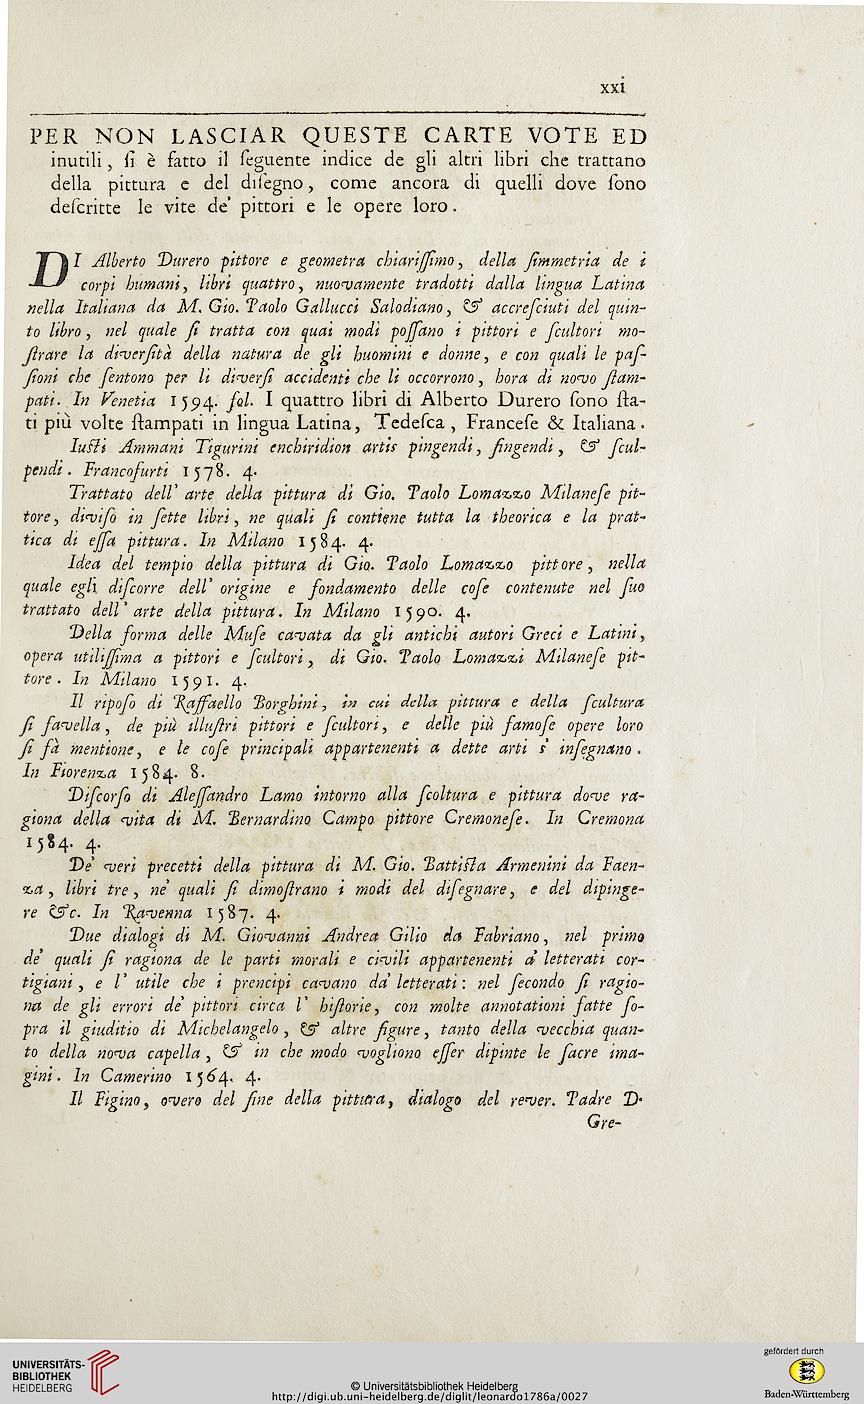 xxi
PER NON LASCIAR QUESTE CARTE VOTE ED
inutili, ſi è fatto il ſeguente indice de gli altri libri che trattano
della pittura e del diſegno, come ancora di quelli dove ſono
deſcritte le vite de' pittori e le opere loro.
DI Alberto Durero pittore e geometra chiariſſimo, della ſimmetria de i
corpi humani, libri quattro, nuovamente tradotti dalla lingua Latina
nella Italiana da M. Gio. Paolo Gallucci Salodiano, & accreſciuti del quin-
to libro, nel quale ſi tratta con quai modi poſſano i pittori e ſcultori mo-
ſtrare la diverſità della natura de gli huomini e donne, e con quali le paſ-
ſioni che ſentono per li diverſi accidenti che li occorrono, hora di novo ſtam-
pati. In Venetia 1594. fol. I quattro libri di Alberto Durero ſono ſta-
ti più volte ſtampati in lingua Latina, Tedeſca, Franceſe & Italiana.
Iuſti Ammani Tigurini enchiridion artis pingendi, fingendi, & ſcul-
pendi. Francofurti 1578. 4.
Trattato dell' arte della pittura di Gio. Paolo Lomazzo Milaneſe pit-
tore, diviſo in ſette libri, ne quali ſi contiene tutta la theorica e la prat-
tica di eſſa pittura. In Milano 1584. 4.
Idea del tempio della pittura di Gio. Paolo Lomazzo pittore, nella
quale egli diſcorre dell' origine e fondamento delle coſe contenute nel ſuo
trattato dell' arte della pittura. In Milano 1590. 4.
Della forma delle Muſe cavata da gli antichi autori Greci e Latini,
opera utiliſſima a pittori e ſcultori, di Gio. Paolo Lomazzi Milaneſe pit-
tore. In Milano 1591. 4.
Il ripoſo di Raffaello Borghini, in cui della pittura e della ſcultura
ſi favella, de più illuſtri pittori e ſcultori, e delle più famoſe opere loro
ſi fà mentione, e le coſe principali appartenenti a dette arti s' inſegnano.
In Fiorenza 1584. 8.
Diſcorſo di Aleſſandro Lamo intorno alla ſcoltura e pittura dove ra-
giona della vita di M. Bernardino Campo pittore Cremoneſe. In Cremona
1584. 4.
De' veri precetti della pittura di M. Gio. Battiſta Armenini da Faen-
za, libri tre, ne' quali ſi dimoſtrano i modi del diſegnare, e del dipinge-
re &c. In Ravenna 1587. 4.
Due dialogi di M. Giovanni Andrea Gilio da Fabriano, nel primo
de' quali ſi ragiona de le parti morali e civili appartenenti a' letterati cor-
tigiani, e l' utile che i prencipi cavano da' letterati: nel ſecondo ſi ragio-
na de gli errori de' pittori circa l' hiſtorie, con molte annotationi fatte ſo-
pra il giuditio di Michelangelo, & altre figure, tanto della vecchia quan-
to della nova capella, & in che modo vogliono eſſer dipinte le ſacre ima-
gini. In Camerino 1564. 4.
Il Figino, overo del fine della pittura, dialogo del rever. Padre D.
Gre-
UNIVERSITÄTS-
BIBLIOTHEK
HEIDELBERG
© Universitätsbibliothek Heidelberg
http://digi.ub.uni-heidelberg.de/diglit/leonardo1786a/0027
gefördert durch
Baden-Württemberg